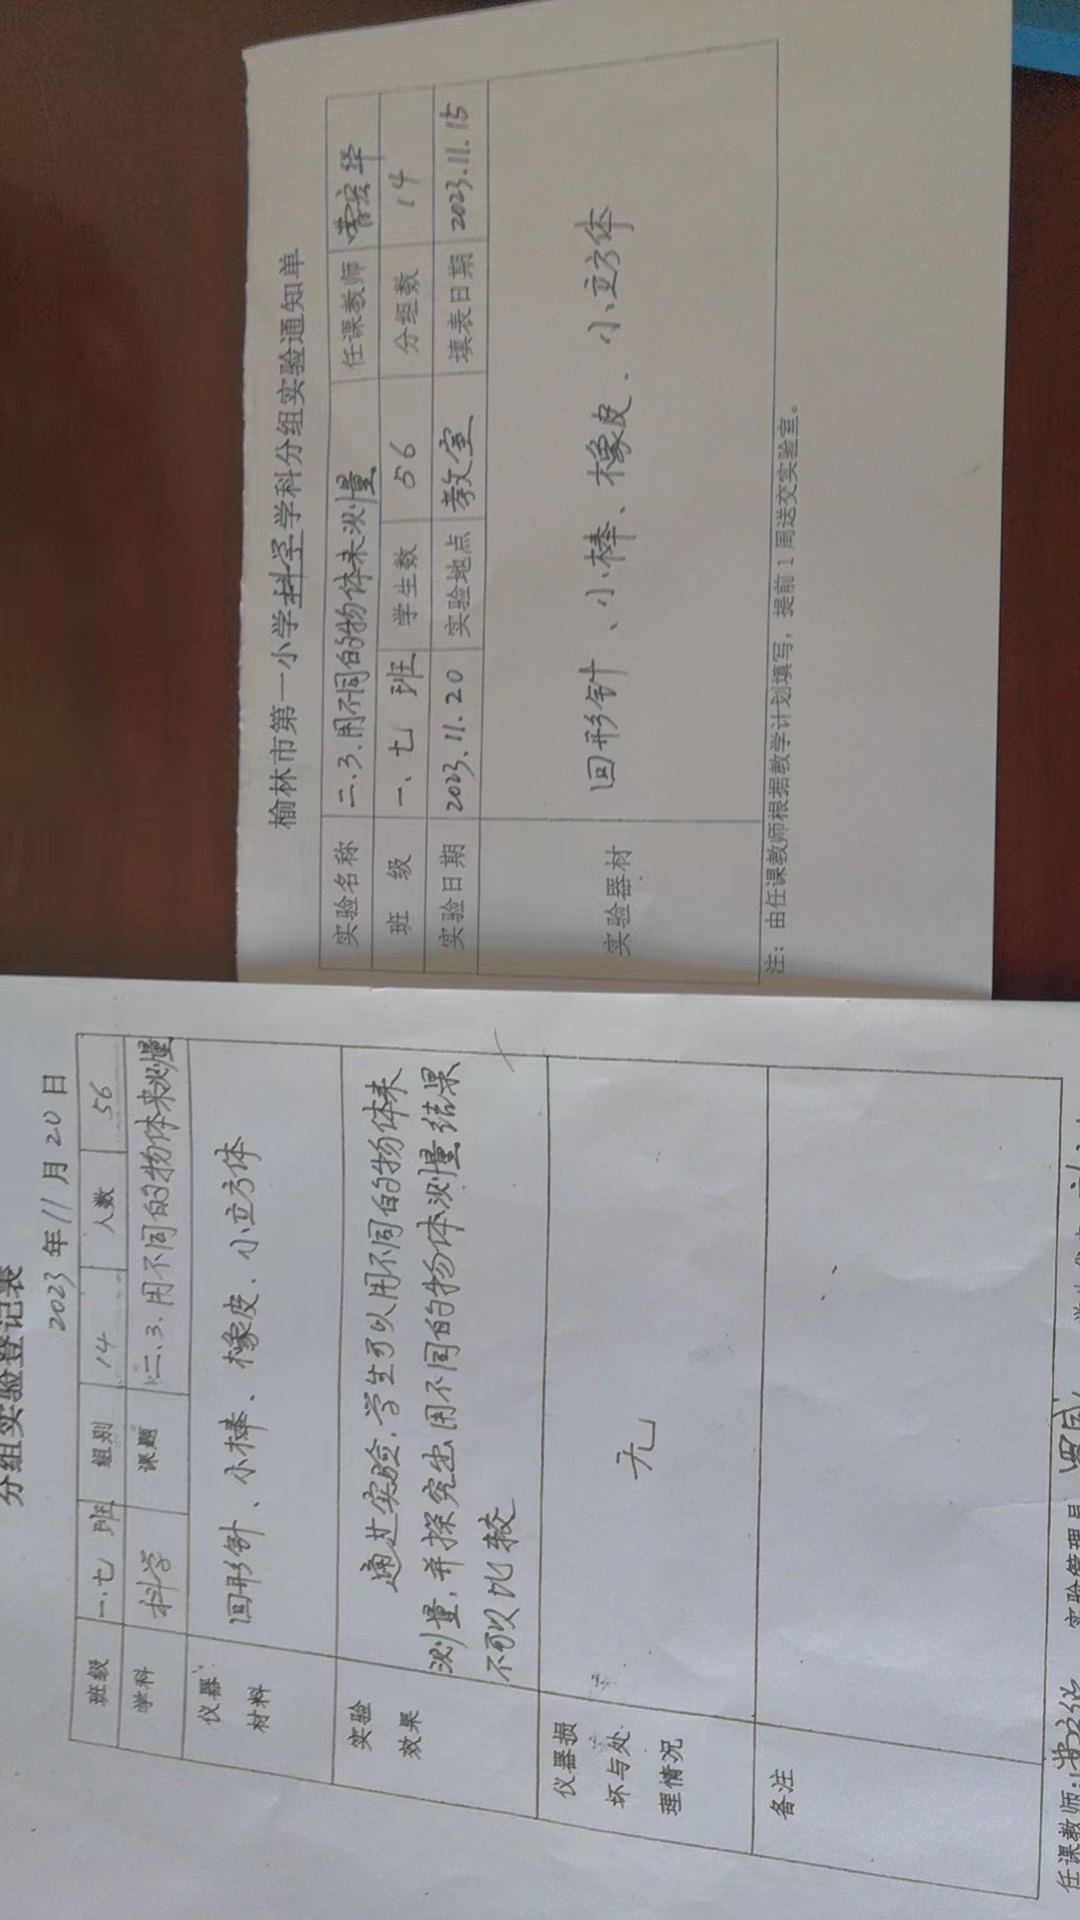 榆林市第一小学科学学科分组实验通知单
实验名称 二、3.用不同的物体来测量 任课教师
班 级 一、七 班 学生数 56 分组数 14
实验日期 2023.11.20 实验地点 教室 填表日期 2023.11.15
实验器材 回形针、小棒、橡皮、小立方体
注：由任课教师根据教学计划填写，提前1周送交实验室。
分组实验登记表
2023年11月20日
班级 一、七 班 组别 14 人数 56
学科 科学 课题 二、3.用不同的物体来测量
仪器材料 回形针、小棒、橡皮、小立方体
实验效果 通过实验，学生可以用不同的物体来
测量，并探究出用不同的物体测量结果
不可以比较
仪器损坏与处理情况 无
备注
任课教师： 实验管理员